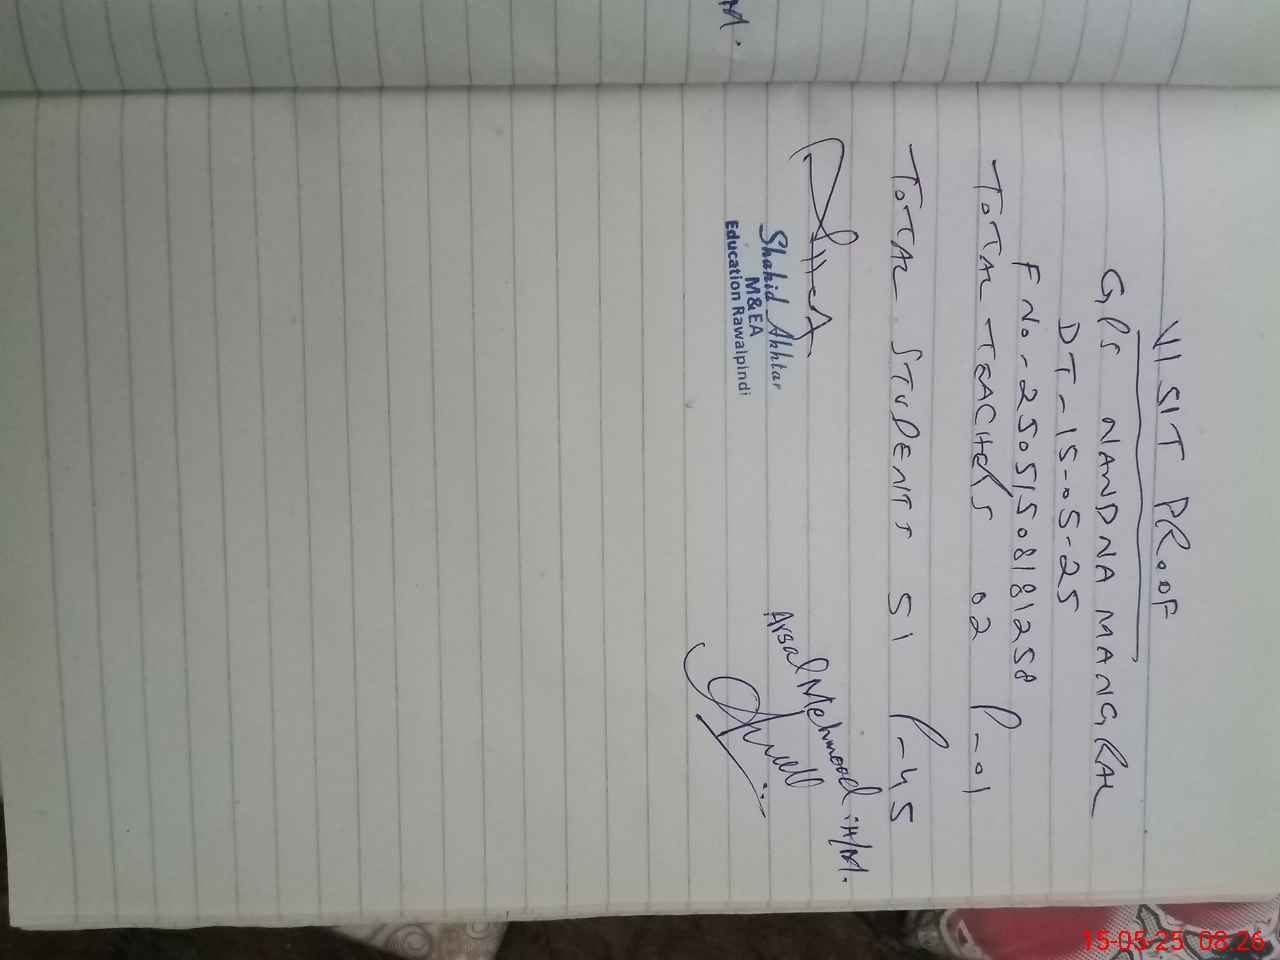 VISIT PROOF
GPS NANDNA MANGRAL
DT-15-05-25
F No-25051508181258
TOTAL TEACHERS 02 P-01
TOTAL STUDENTS 51 P-45
Shahid Akhtar
M&EA
Education Rawalpindi
Arsal Mehmood H/M.
M.
15-05-25 08:26